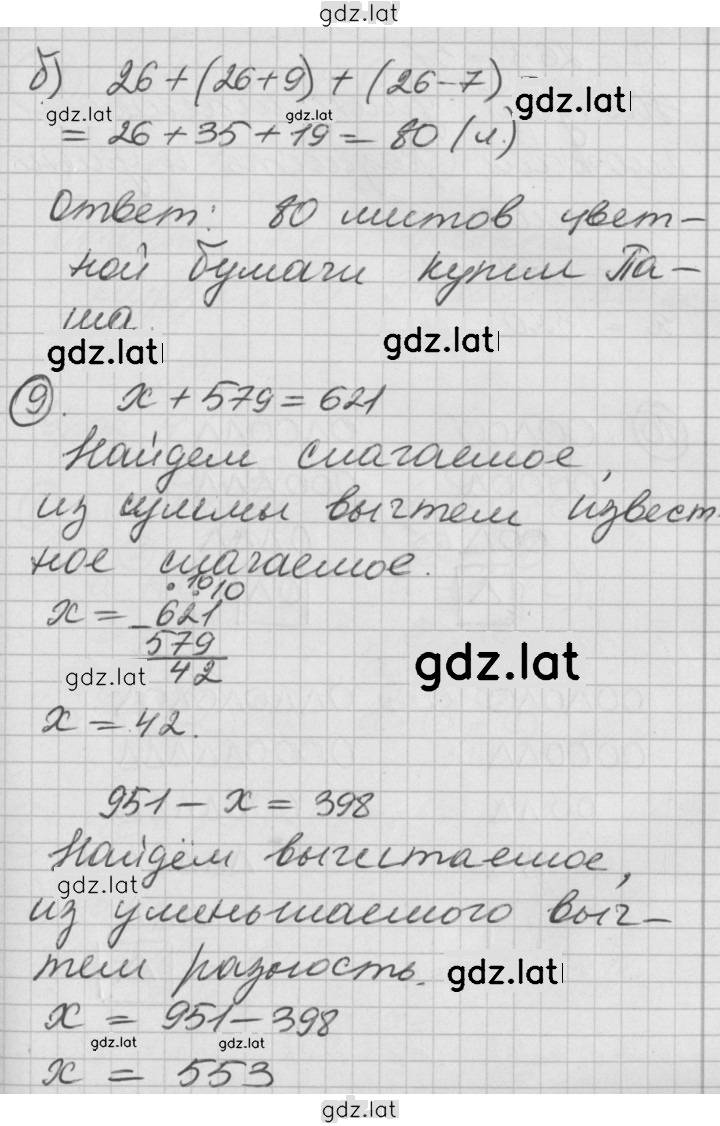 gdz.lat
б) 26 + (26+9) + (26-7)
gdz.lat gdz.lat gdz.lat
= 26 + 35 + 19 = 80 (л.)
Ответ: 80 листов цвет-
ной бумаги купил Па-
ша.
gdz.lat gdz.lat
9. x + 579 = 621
Найдем слагаемое,
из суммы вычтем извест-
ное слагаемое.
10 10
x = - 621
579
gdz.lat 42 gdz.lat
x = 42.
951 - x = 398
Найдём вычитаемое,
gdz.lat
из уменьшаемого выч-
тем разность. gdz.lat
x = 951 - 398
gdz.lat gdz.lat
x = 553
gdz.lat